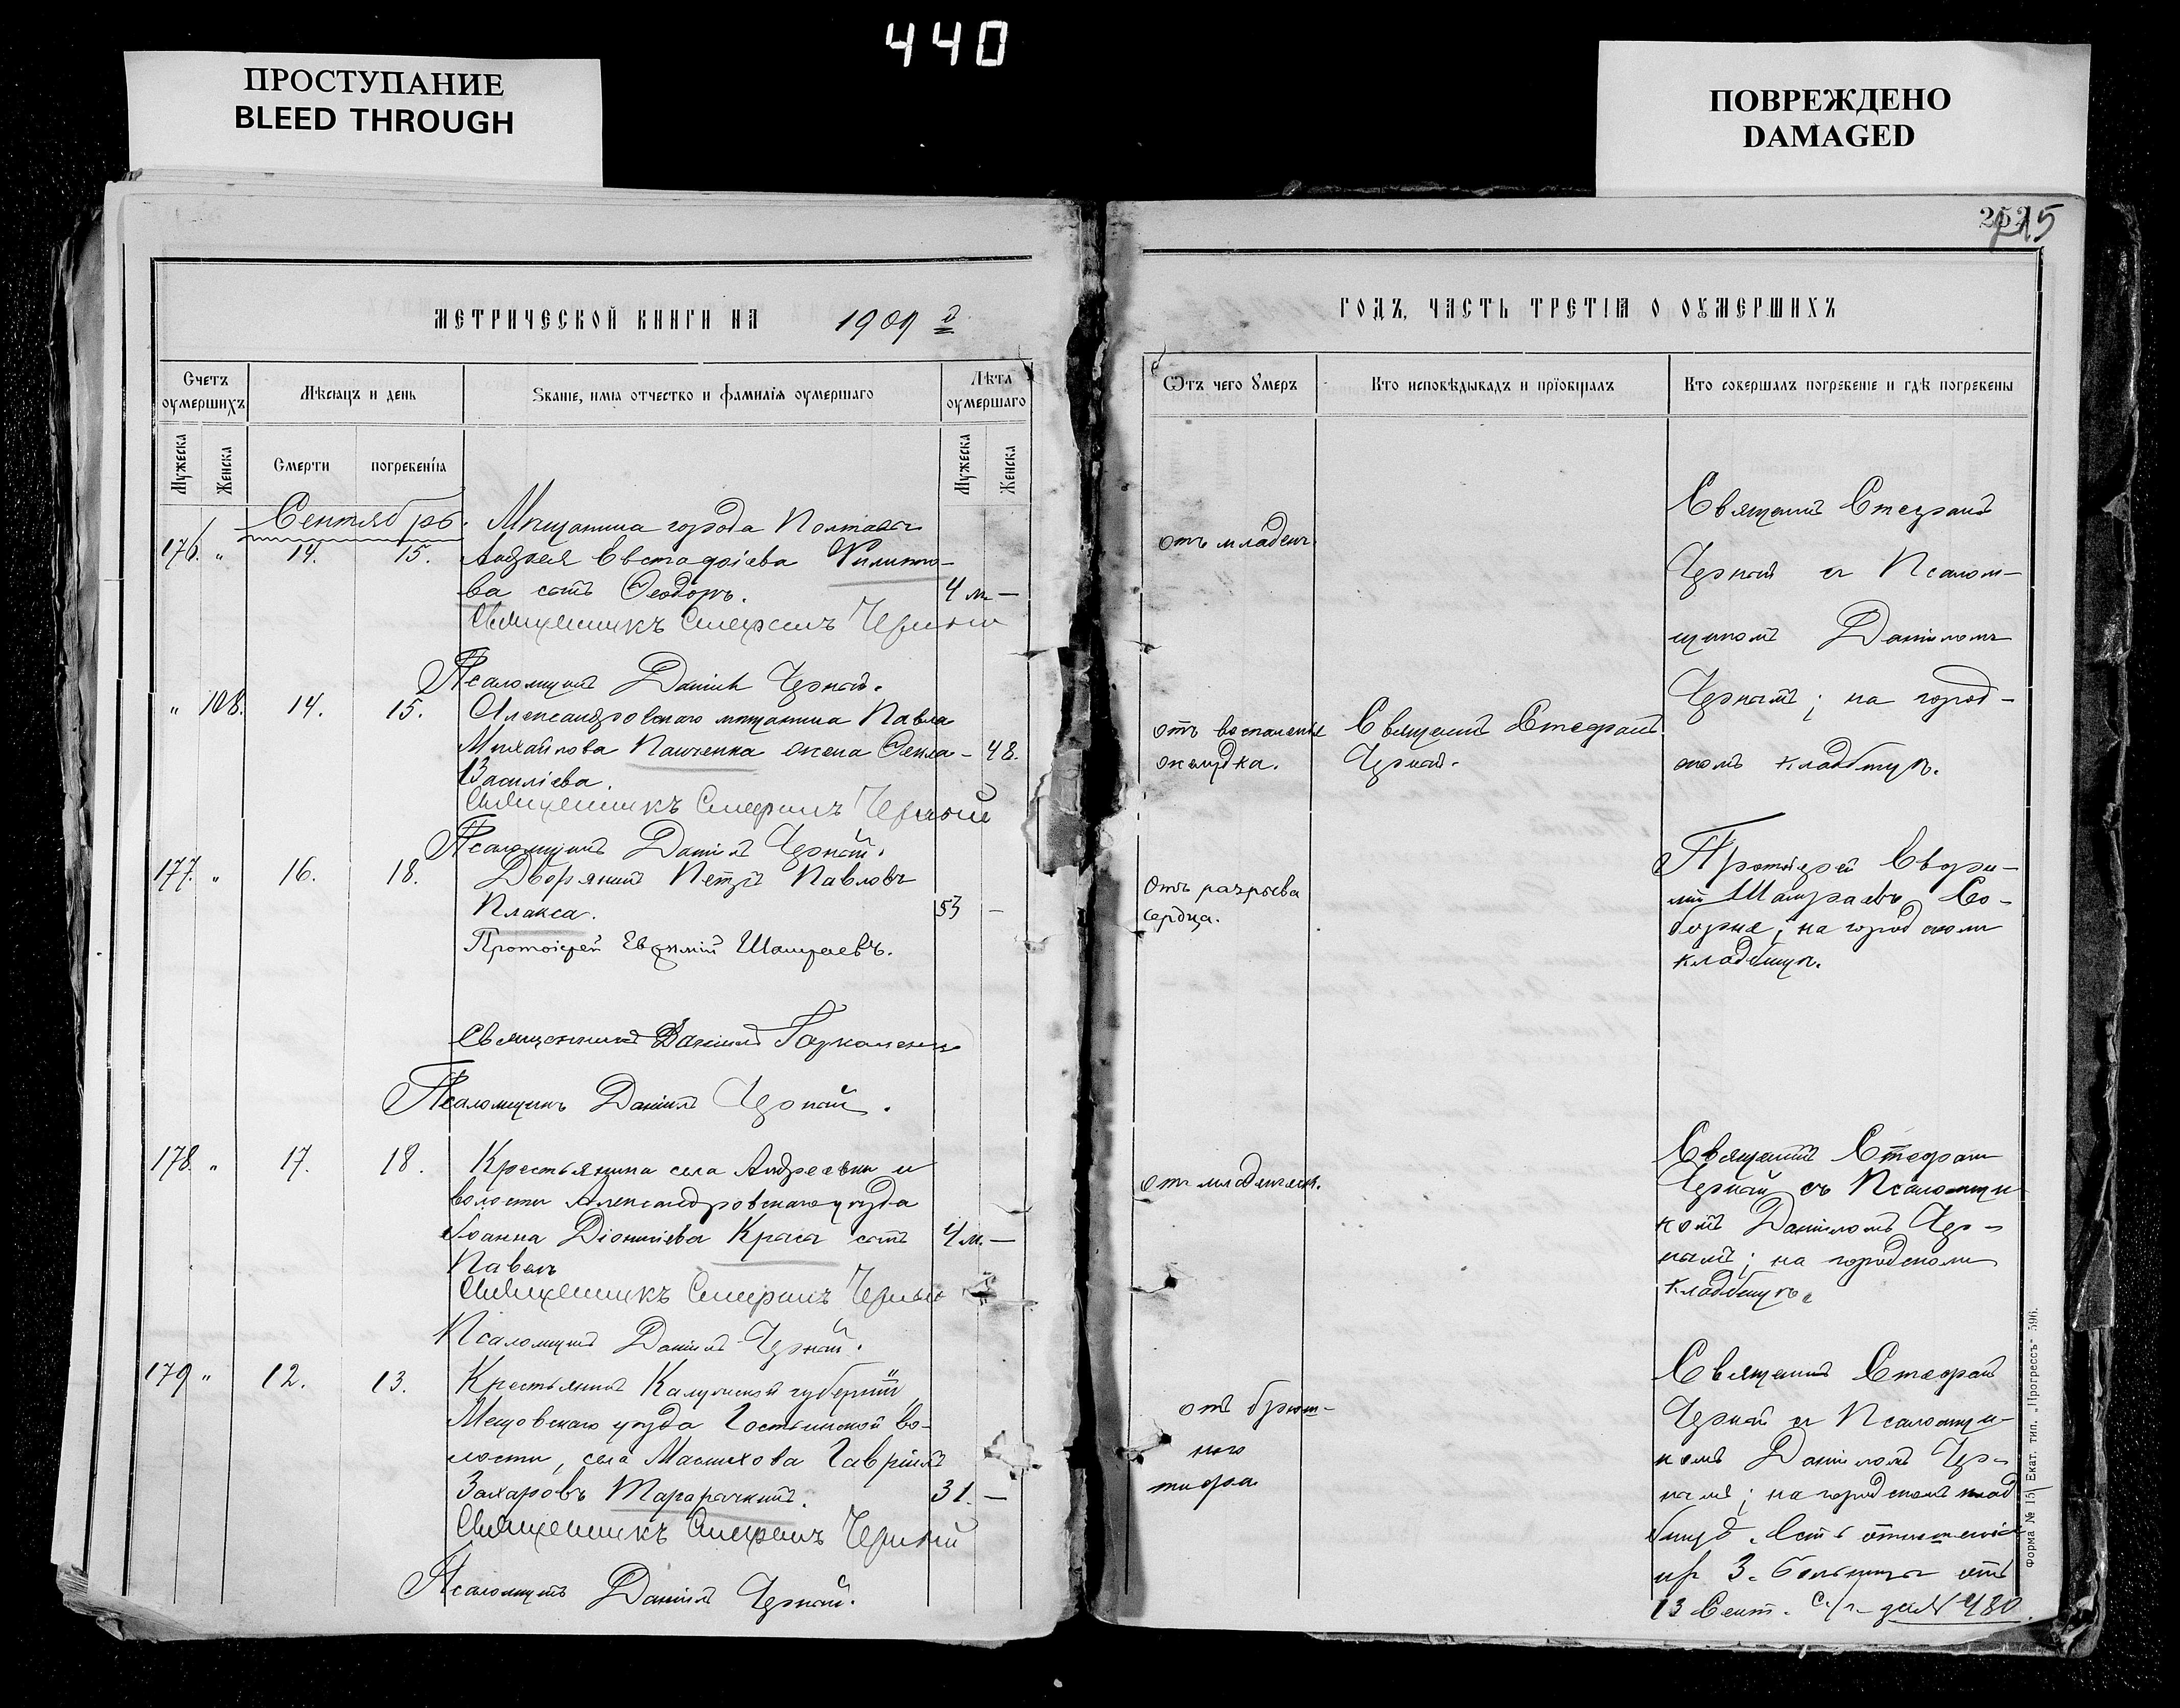 440
ПРОСТУПАНИЕ
BLEED THROUGH
ПОВРЕЖДЕНО
DAMAGED
МЕТРИЧЕСКОЙ КНИГИ НА 1909 д
Счетъ оумершихъ
Мѣсяцъ и день
Званіе, имя отчество и фамилія оумершаго
Лѣта оумершаго
Мужеска
Женска
Смерти
погребенія
Мужеска
Женска
Сентябрь.
Мѣщанина города Полтавы
176. " 14. 15. Андрея Евстафіева Филиппо-
ва сынъ Ѳеодоръ. 4 м. —
Священникъ Стефанъ Черный
Псаломщикъ Даніилъ Черный.
" 108. 14. 15. Александровскаго мѣщанина Павла
Михайлова Панченка жена Ѳекла - 48.
Василіева.
Священникъ Стефанъ Черный
Псаломщикъ Даніилъ Черный.
177. " 16. 18. Дворянинъ Петръ Павловъ
Плакса. 53 —
Протоіерей Евѳимій
Священникъ Даніилъ
Псаломщикъ Даніилъ Черный.
178. " 17. 18. Крестьянина села Андреевки и
волости Александровскаго уѣзда
Іоанна Діонисіева Краса сынъ 4 м. —
Павелъ
Священникъ Стефанъ Черный
Псаломщикъ Даніилъ Черный.
179 " 12. 13. Крестьянинъ Калужской губерніи
Мещовскаго уѣзда во-
лости, села Гавріилъ
Захаровъ 31. —
Священникъ Стефанъ Черный
Псаломщикъ Даніилъ Черный.
215
ГОДЪ, ЧАСТЬ ТРЕТІЯ О ОУМЕРШИХЪ
Ѿтъ чего Умеръ
Кто исповѣдывалъ и пріобщалъ
Кто совершалъ погребеніе и гдѣ погребены
отъ младен.
Священ. Стефанъ
Черный съ Псалом-
щикомъ Даніиломъ
Чернымъ; на город-
скомъ кладбищѣ.
отъ воспаленія
желудка.
Священ. Стефанъ
Черный.
отъ разрыва
сердца.
Протоіерей Евѳи-
мій Со-
борне; на городскомъ
кладбищѣ.
отъ младенческ.
Священ. Стефанъ
Черный съ Псаломщи
комъ Даніиломъ Чер-
нымъ; на городскомъ
кладбищѣ.
отъ брюш-
ного
тифа
Священ. Стефанъ
Черный съ Псаломщи-
комъ Даніиломъ Чер-
нымъ; на городскомъ клад
бищѣ. Есть отношеніе
З. больницы отъ
13 Сент. с/г. за № 480.
Форма № 15 Екат. тип. „Прогрессъ" 596.